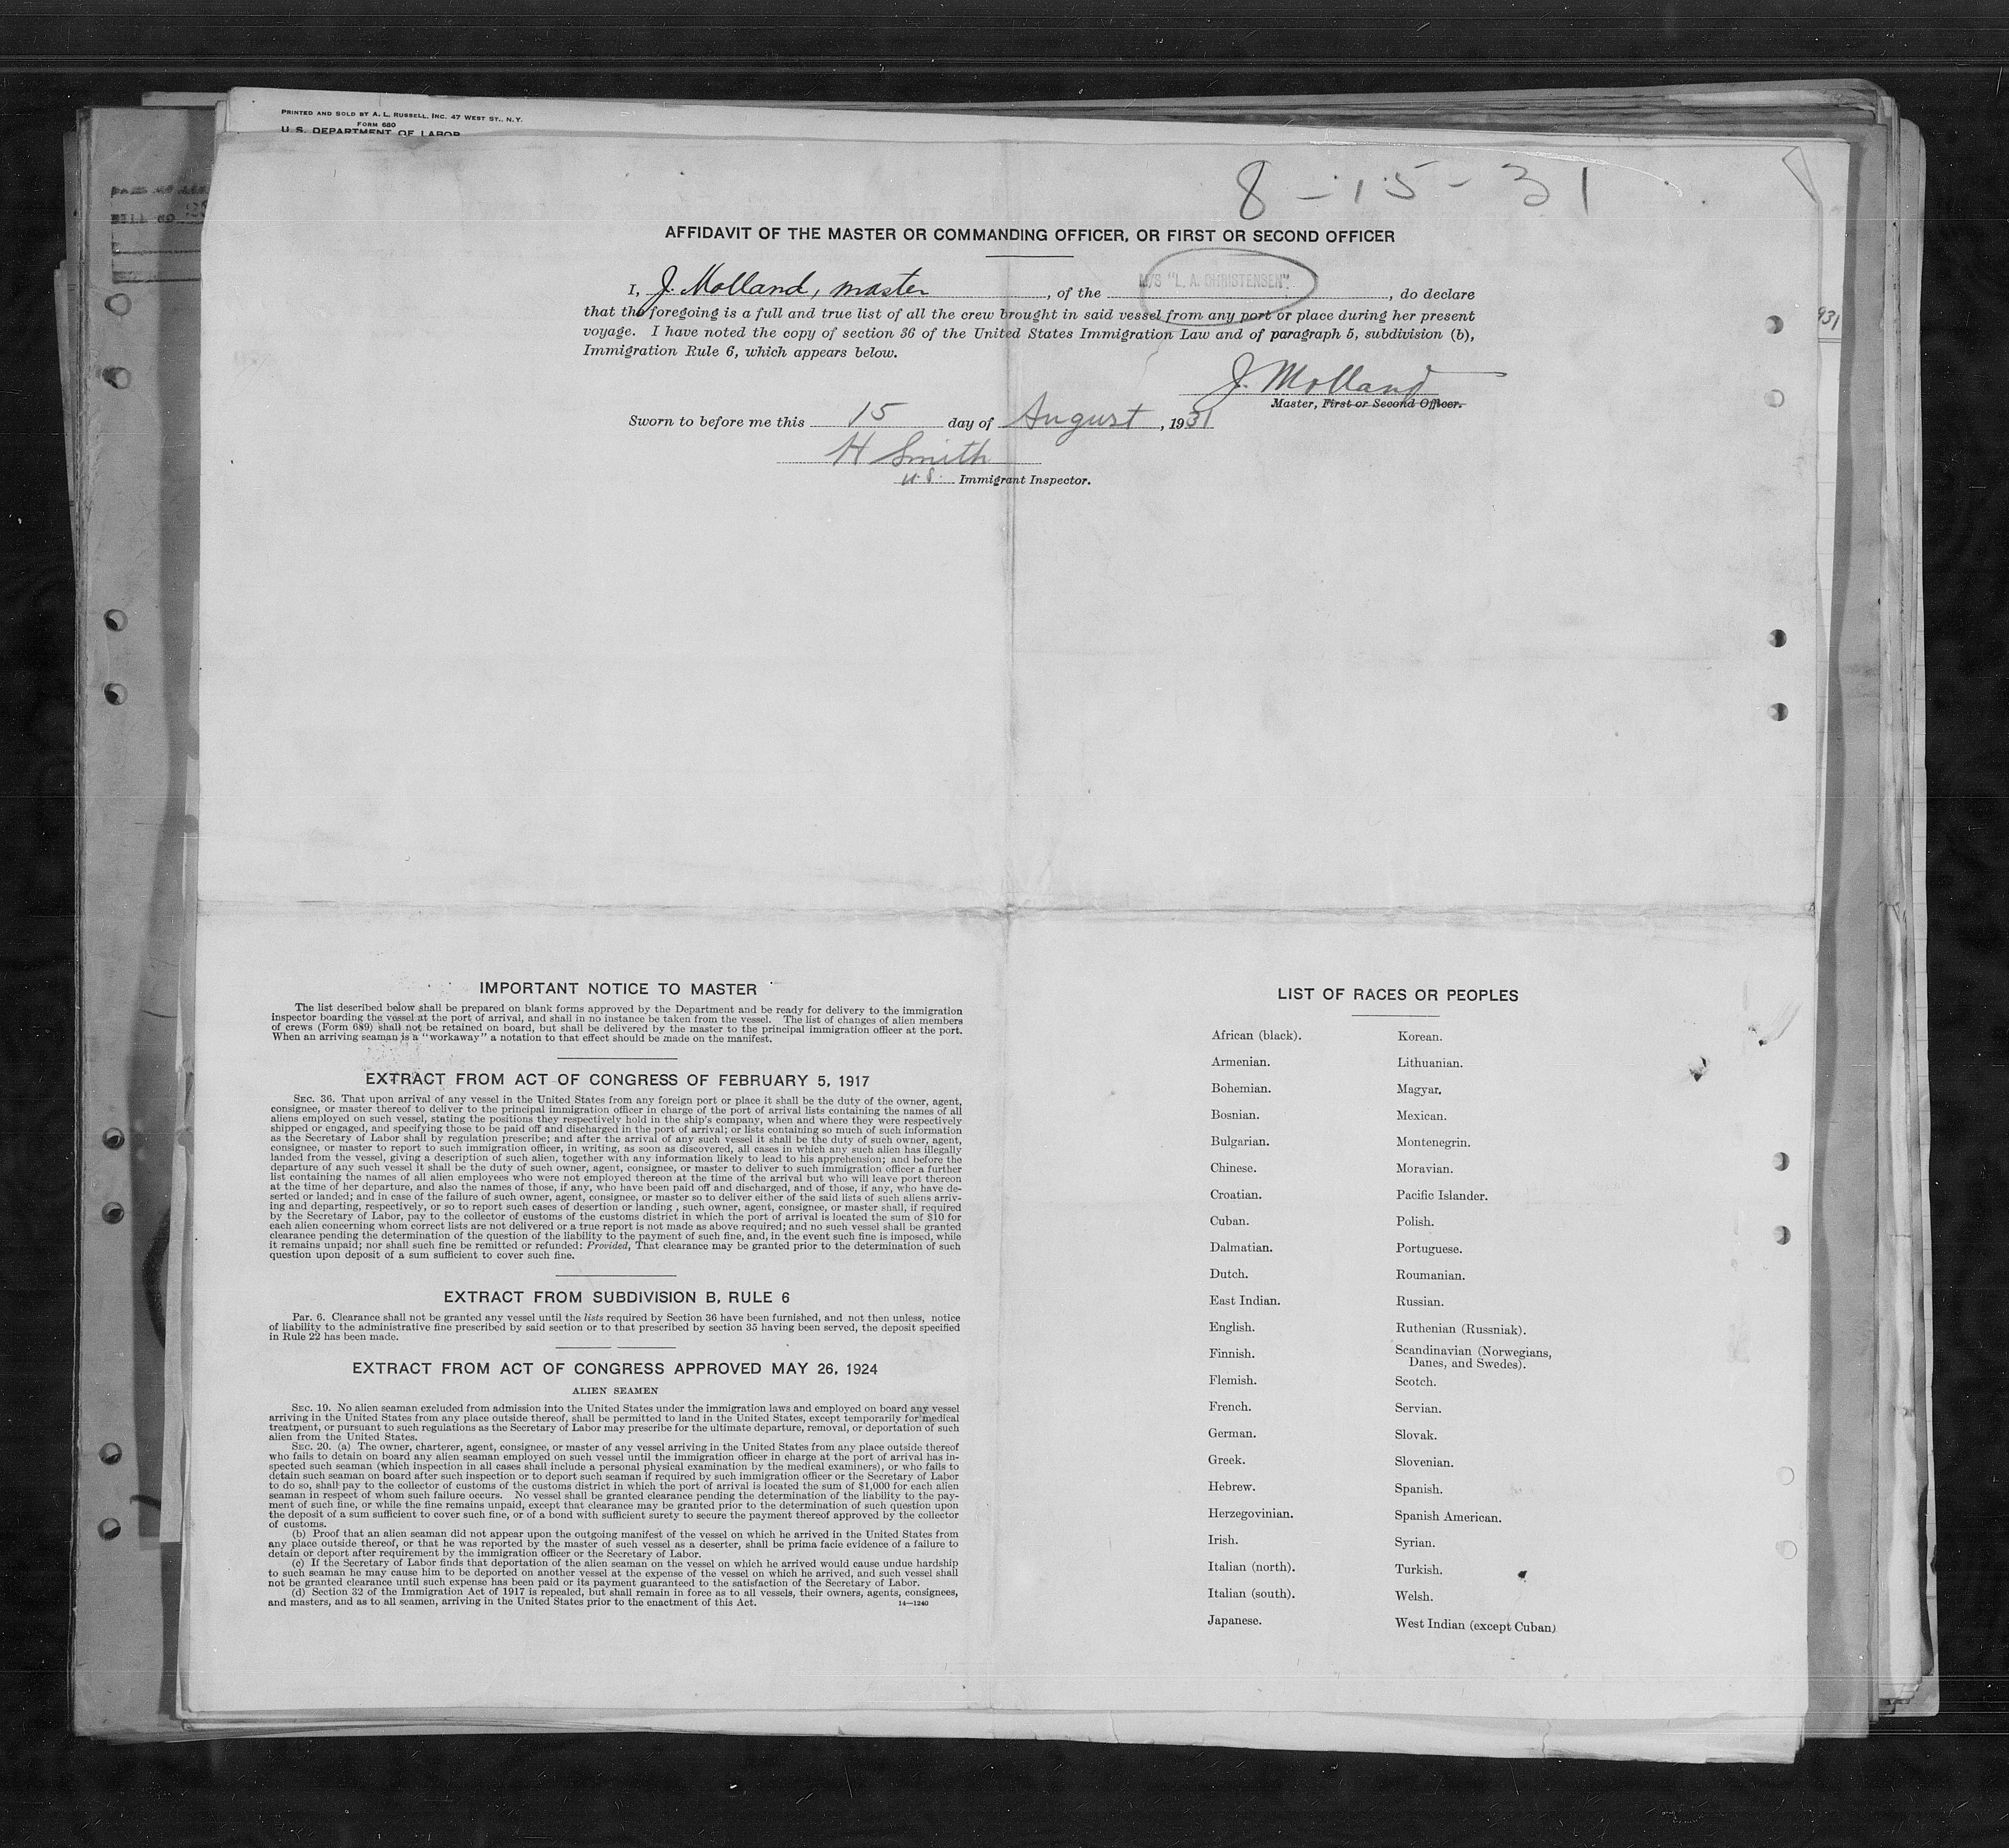 PRINTED AND SOLD BY A. L. RUSSELL, INC. 47 WEST ST., N.Y.
FORM 680
U. S. DEPARTMENT OF LABOR
8-15-31
931
AFFIDAVIT OF THE MASTER OR COMMANDING OFFICER, OR FIRST OR SECOND OFFICER
I, J. Molland, master, of the M/S "L. A. CHRISTENSEN", do declare
that the foregoing is a full and true list of all the crew brought in said vessel from any port or place during her present
voyage. I have noted the copy of section 36 of the United States Immigration Law and of paragraph 5, subdivision (b),
Immigration Rule 6, which appears below.
J. Molland
Master, First or Second Officer.
Sworn to before me this 15 day of August, 1931
H Smith
U.S. Immigrant Inspector.
IMPORTANT NOTICE TO MASTER
The list described below shall be prepared on blank forms approved by the Department and be ready for delivery to the immigration
inspector boarding the vessel at the port of arrival, and shall in no instance be taken from the vessel. The list of changes of alien members
of crews (Form 689) shall not be retained on board, but shall be delivered by the master to the principal immigration officer at the port.
When an arriving seaman is a "workaway" a notation to that effect should be made on the manifest.
EXTRACT FROM ACT OF CONGRESS OF FEBRUARY 5, 1917
SEC. 36. That upon arrival of any vessel in the United States from any foreign port or place it shall be the duty of the owner, agent,
consignee, or master thereof to deliver to the principal immigration officer in charge of the port of arrival lists containing the names of all
aliens employed on such vessel, stating the positions they respectively hold in the ship's company, when and where they were respectively
shipped or engaged, and specifying those to be paid off and discharged in the port of arrival; or lists containing so much of such information
as the Secretary of Labor shall by regulation prescribe; and after the arrival of any such vessel it shall be the duty of such owner, agent,
consignee, or master to report to such immigration officer, in writing, as soon as discovered, all cases in which any such alien has illegally
landed from the vessel, giving a description of such alien, together with any information likely to lead to his apprehension; and before the
departure of any such vessel it shall be the duty of such owner, agent, consignee, or master to deliver to such immigration officer a further
list containing the names of all alien employees who were not employed thereon at the time of the arrival but who will leave port thereon
at the time of her departure, and also the names of those, if any, who have been paid off and discharged, and of those, if any, who have de-
serted or landed; and in case of the failure of such owner, agent, consignee, or master so to deliver either of the said lists of such aliens arriv-
ing and departing, respectively, or so to report such cases of desertion or landing , such owner, agent, consignee, or master shall, if required
by the Secretary of Labor, pay to the collector of customs of the customs district in which the port of arrival is located the sum of $10 for
each alien concerning whom correct lists are not delivered or a true report is not made as above required; and no such vessel shall be granted
clearance pending the determination of the question of the liability to the payment of such fine, and, in the event such fine is imposed, while
it remains unpaid; nor shall such fine be remitted or refunded: Provided, That clearance may be granted prior to the determination of such
question upon deposit of a sum sufficient to cover such fine.
EXTRACT FROM SUBDIVISION B, RULE 6
Par. 6. Clearance shall not be granted any vessel until the lists required by Section 36 have been furnished, and not then unless, notice
of liability to the administrative fine prescribed by said section or to that prescribed by section 35 having been served, the deposit specified
in Rule 22 has been made.
EXTRACT FROM ACT OF CONGRESS APPROVED MAY 26, 1924
ALIEN SEAMEN
SEC. 19. No alien seaman excluded from admission into the United States under the immigration laws and employed on board any vessel
arriving in the United States from any place outside thereof, shall be permitted to land in the United States, except temporarily for medical
treatment, or pursuant to such regulations as the Secretary of Labor may prescribe for the ultimate departure, removal, or deportation of such
alien from the United States.
SEC. 20. (a) The owner, charterer, agent, consignee, or master of any vessel arriving in the United States from any place outside thereof
who fails to detain on board any alien seaman employed on such vessel until the immigration officer in charge at the port of arrival has in-
spected such seaman (which inspection in all cases shall include a personal physical examination by the medical examiners), or who fails to
detain such seaman on board after such inspection or to deport such seaman if required by such immigration officer or the Secretary of Labor
to do so, shall pay to the collector of customs of the customs district in which the port of arrival is located the sum of $1,000 for each alien
seaman in respect of whom such failure occurs. No vessel shall be granted clearance pending the determination of the liability to the pay-
ment of such fine, or while the fine remains unpaid, except that clearance may be granted prior to the determination of such question upon
the deposit of a sum sufficient to cover such fine, or of a bond with sufficient surety to secure the payment thereof approved by the collector
of customs.
(b) Proof that an alien seaman did not appear upon the outgoing manifest of the vessel on which he arrived in the United States from
any place outside thereof, or that he was reported by the master of such vessel as a deserter, shall be prima facie evidence of a failure to
detain or deport after requirement by the immigration officer or the Secretary of Labor.
(c) If the Secretary of Labor finds that deportation of the alien seaman on the vessel on which he arrived would cause undue hardship
to such seaman he may cause him to be deported on another vessel at the expense of the vessel on which he arrived, and such vessel shall
not be granted clearance until such expense has been paid or its payment guaranteed to the satisfaction of the Secretary of Labor.
(d) Section 32 of the Immigration Act of 1917 is repealed, but shall remain in force as to all vessels, their owners, agents, consignees,
and masters, and as to all seamen, arriving in the United States prior to the enactment of this Act. 14—1240
LIST OF RACES OR PEOPLES
African (black).
Armenian.
Bohemian.
Bosnian.
Bulgarian.
Chinese.
Croatian.
Cuban.
Dalmatian.
Dutch.
East Indian.
English.
Finnish.
Flemish.
French.
German.
Greek.
Hebrew.
Herzegovinian.
Irish.
Italian (north).
Italian (south).
Japanese.
Korean.
Lithuanian.
Magyar.
Mexican.
Montenegrin.
Moravian.
Pacific Islander.
Polish.
Portuguese.
Roumanian.
Russian.
Ruthenian (Russniak).
Scandinavian (Norwegians,
Danes, and Swedes).
Scotch.
Servian.
Slovak.
Slovenian.
Spanish.
Spanish American.
Syrian.
Turkish.
Welsh.
West Indian (except Cuban)